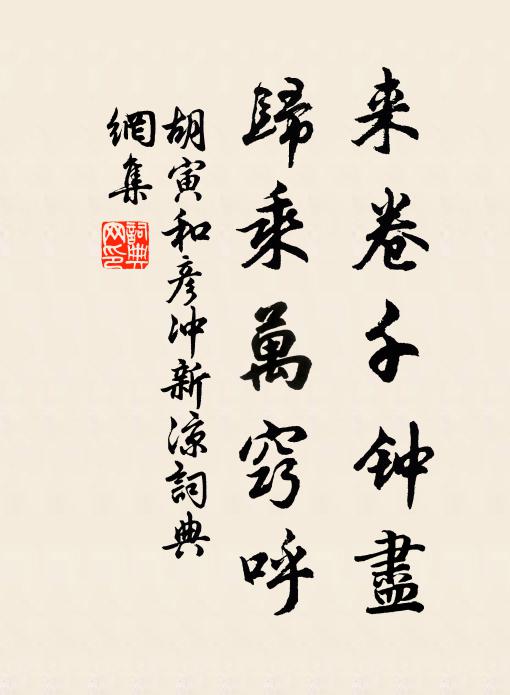 来卷千钟盡
歸乘萬窍呼
胡寅和彦冲新凉詞典
網集
詞典
网印